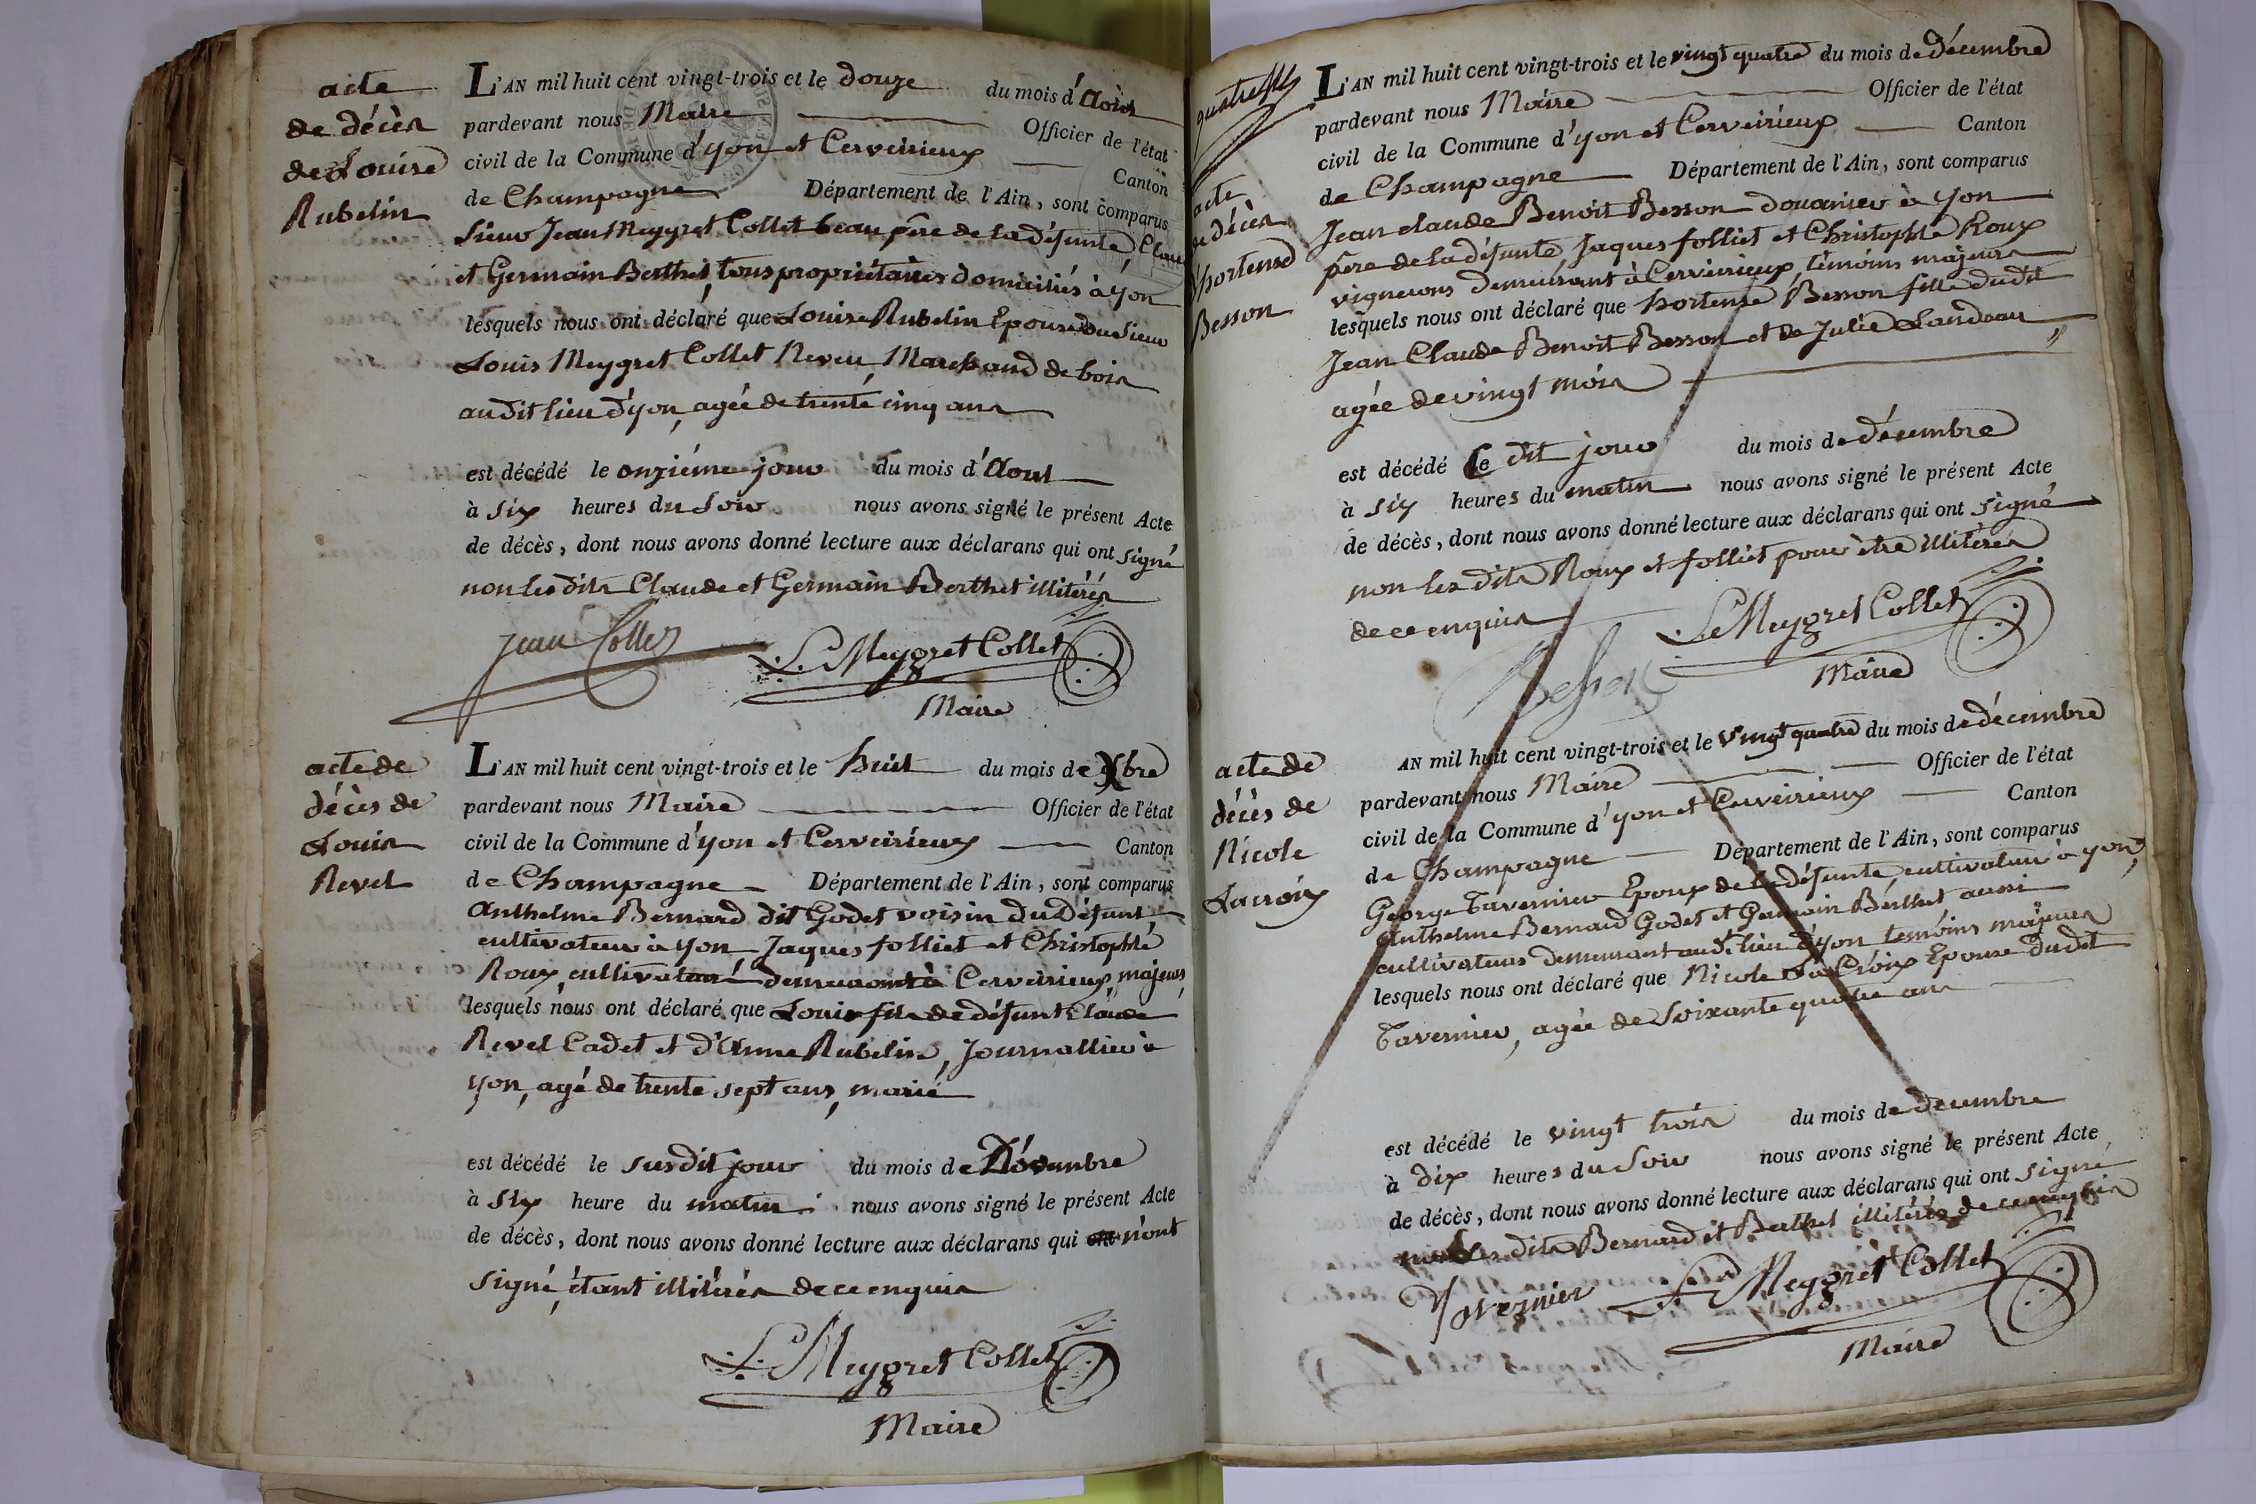 acte
de décès
de Louise
Rubelin
L'AN mil huit cent vingt-trois et le douze du mois d'Août
pardevant nous Maire Officier de l'état
civil de la Commune d'yon et Cerveirieux Canton
de Champagne Département de l'Ain, sont comparus
Sieur Jean Meygret Collet beau père de la défunte, Clau
et Germain Berthet, tous propriétaires domiciliés à yon
lesquels nous ont déclaré que Louise Rubelin Epouse du Sieur
Louis Meygret Collet Neveu, Marchand de bois
audit lieu d'yon, agée de trente cinq ans
est décédé le onzième jour du mois d'Aout
à six heures du Soir nous avons signé le présent Acte
de décès, dont nous avons donné lecture aux déclarans qui ont signé
non les dits Claude et Germain Berthet illitérés
Jean Collet
L. Meygret Collet
Maire
acte de
décès de
Louis
Revel
L'AN mil huit cent vingt-trois et le huit du mois de Xbre
pardevant nous Maire Officier de l'état
civil de la Commune d'yon et Cerveirieux Canton
de Champagne Département de l'Ain, sont comparus
Anthelme Bernard dit Godet voisin du Défunt
cultivateur à yon, Jaques folliet et Christophle
Roux, cultivateurs demeurant à Cerveirieux, majeurs,
lesquels nous ont déclaré que Louis fils de défunt Claude
Revel Cadet et d'Anne Rubelin, Journallier à
yon, agé de trente sept ans, marié
est décédé le susdit jour du mois de Décembre
à six heure du matin nous avons signé le présent Acte
de décès, dont nous avons donné lecture aux déclarans qui n'ont
signé, étant illitérés de ce enquis
L. Meygret Collet
Maire
acte
de décès
d'hortense
Besson
L'AN mil huit cent vingt-trois et le vingt quatre du mois de décembre
pardevant nous Maire Officier de l'état
civil de la Commune d'yon et Cerveirieux Canton
de Champagne Département de l'Ain, sont comparus
Jean claude Benoit Besson douanier à yon
père de la défunte, Jaques folliet et Christophle Roux
vignerons demeurant à Cerveirieux, témoins majeurs
lesquels nous ont déclaré que hortense Besson fille dudit
Jean Claude Benoit Besson et de Julie Landeau
agée de vingt mois
est décédé le dit jour du mois de décembre
à six heures du matin nous avons signé le présent Acte
de décès, dont nous avons donné lecture aux déclarans qui ont signé
non les dits Roux et folliet pour être illitérés
de ce enquis
L. Meygret Collet
Besson
Maire
acte de
décès de
Nicole
Lacroix
AN mil huit cent vingt-trois et le vingt quatre du mois de décembre
pardevant nous Maire Officier de l'état
civil de la Commune d'yon et Cerveirieux Canton
de Champagne Département de l'Ain, sont comparus
George Tavernier Epoux de la défunte, cultivateur à yon,
Anthelme Bernard Godet et Germain Berthet aussi
cultivateurs demeurant audit lieu d'yon témoins majeurs
lesquels nous ont déclaré que Nicole La Croix Epouse dudit
Tavernier, agée de Soixante quatre ans
est décédé le vingt trois du mois de décembre
à dix heures du Soir nous avons signé le présent Acte
de décès, dont nous avons donné lecture aux déclarans qui ont signé
non les dits Bernard et Berthet illitérés de ce enquis
Tavernier
L. Meygret Collet
Maire